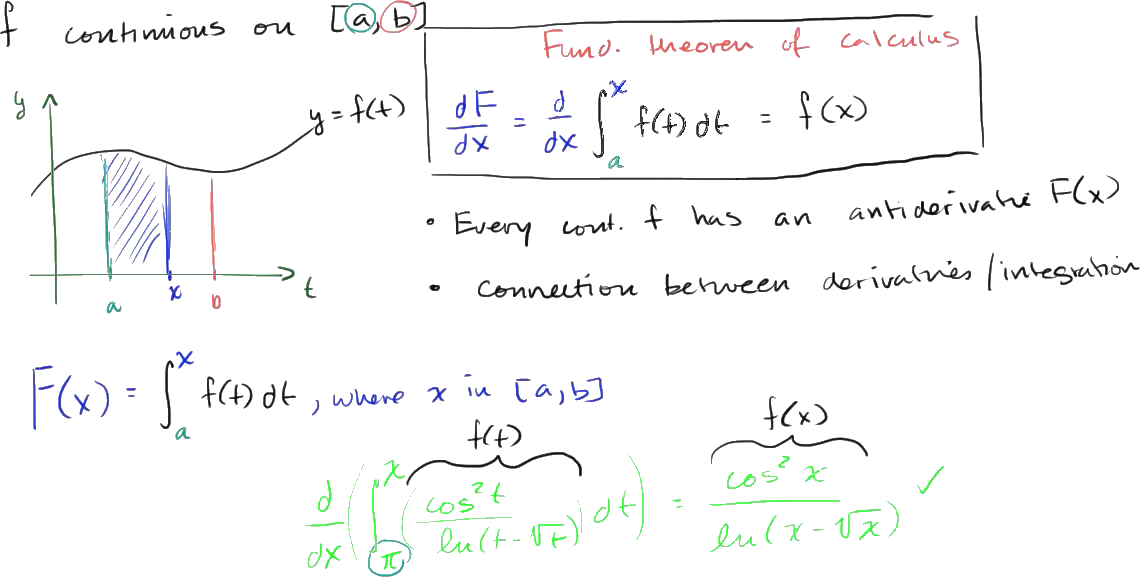 f continuous on [a, b]
Fund. theorem of calculus
y
y = f(t)
dF/dx = d/dx ∫_a^x f(t) dt = f(x)
• Every cont. f has an antiderivative F(x)
a x b t
• connection between derivatives / integration
F(x) = ∫_a^x f(t) dt, where x in [a, b]
f(t) f(x)
d/dx ( ∫_π^x ( cos² t / ln(t - √t) ) dt ) = cos² x / ln(x - √x) ✓